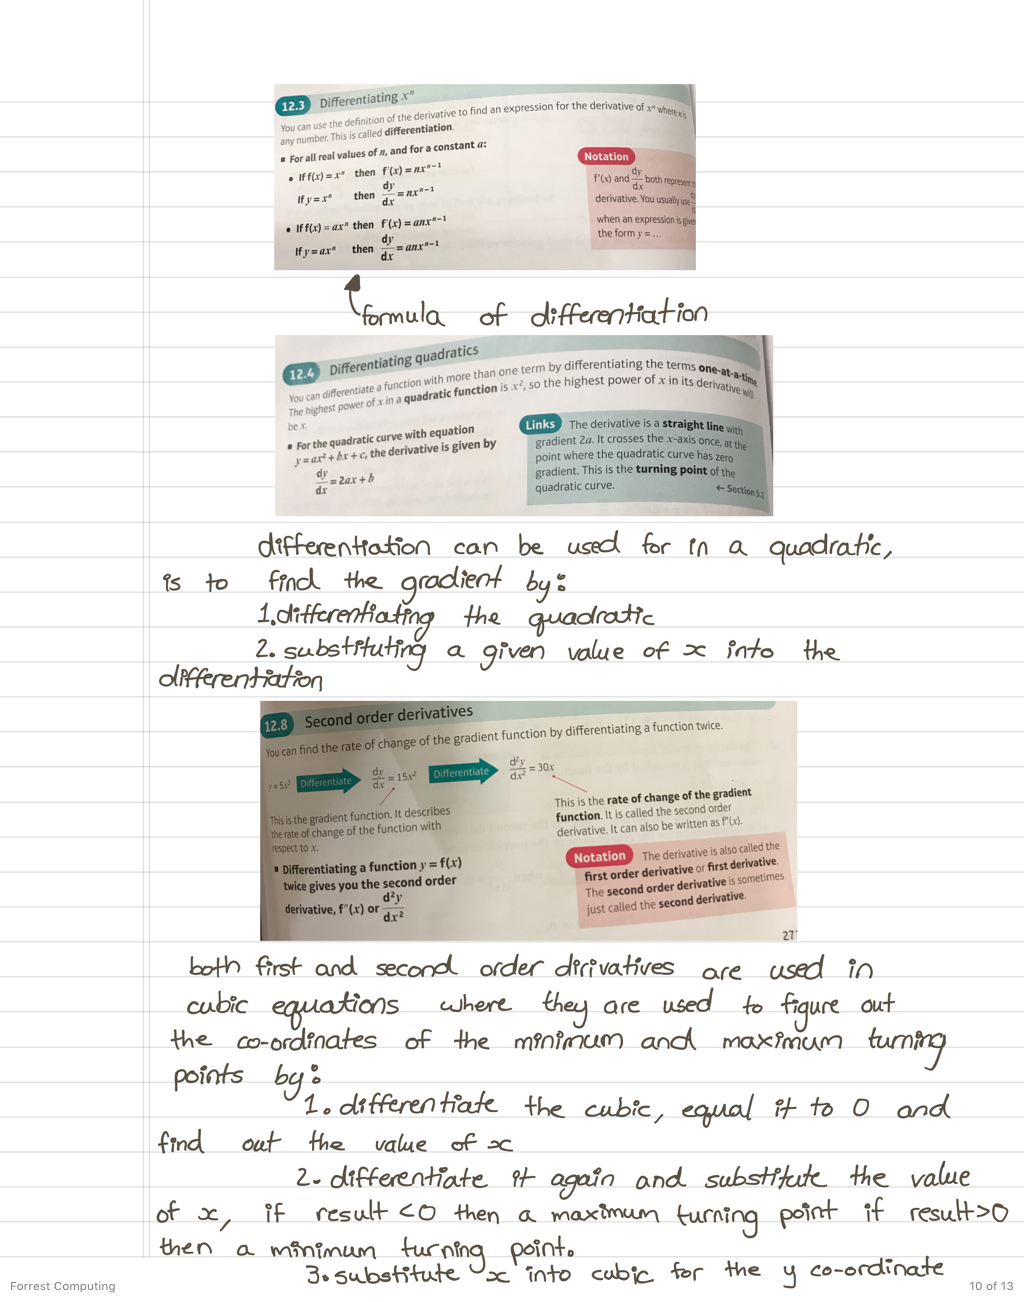 12.3 Differentiating xⁿ
You can use the definition of the derivative to find an expression for the derivative of xⁿ where n is
any number. This is called differentiation.
▪ For all real values of n, and for a constant a:
• If f(x) = xⁿ then f′(x) = nxⁿ⁻¹
If y = xⁿ then dy/dx = nxⁿ⁻¹
• If f(x) = axⁿ then f′(x) = anxⁿ⁻¹
If y = axⁿ then dy/dx = anxⁿ⁻¹
Notation
f′(x) and dy/dx both represent
derivative. You usually use
when an expression is given
the form y = ...
formula of differentiation
12.4 Differentiating quadratics
You can differentiate a function with more than one term by differentiating the terms one-at-a-time.
The highest power of x in a quadratic function is x², so the highest power of x in its derivative will
be x.
▪ For the quadratic curve with equation
y = ax² + bx + c, the derivative is given by
dy/dx = 2ax + b
Links The derivative is a straight line with
gradient 2a. It crosses the x-axis once, at the
point where the quadratic curve has zero
gradient. This is the turning point of the
quadratic curve.
← Section 5.1
differentiation can be used for in a quadratic,
is to find the gradient by:
1. differentiating the quadratic
2. substituting a given value of x into the
differentiation
12.8 Second order derivatives
You can find the rate of change of the gradient function by differentiating a function twice.
y = 5x³ Differentiate dy/dx = 15x² Differentiate d²y/dx² = 30x
This is the gradient function. It describes
the rate of change of the function with
respect to x.
This is the rate of change of the gradient
function. It is called the second order
derivative. It can also be written as f″(x).
▪ Differentiating a function y = f(x)
twice gives you the second order
derivative, f″(x) or d²y/dx²
Notation The derivative is also called the
first order derivative or first derivative.
The second order derivative is sometimes
just called the second derivative.
27
both first and second order dirivatives are used in
cubic equations where they are used to figure out
the co-ordinates of the minimum and maximum turning
points by:
1. differentiate the cubic, equal it to 0 and
find out the value of x
2. differentiate it again and substitute the value
of x, if result <0 then a maximum turning point if result>0
then a minimum turning point.
3. substitute x into cubic for the y co-ordinate
Forrest Computing
10 of 13